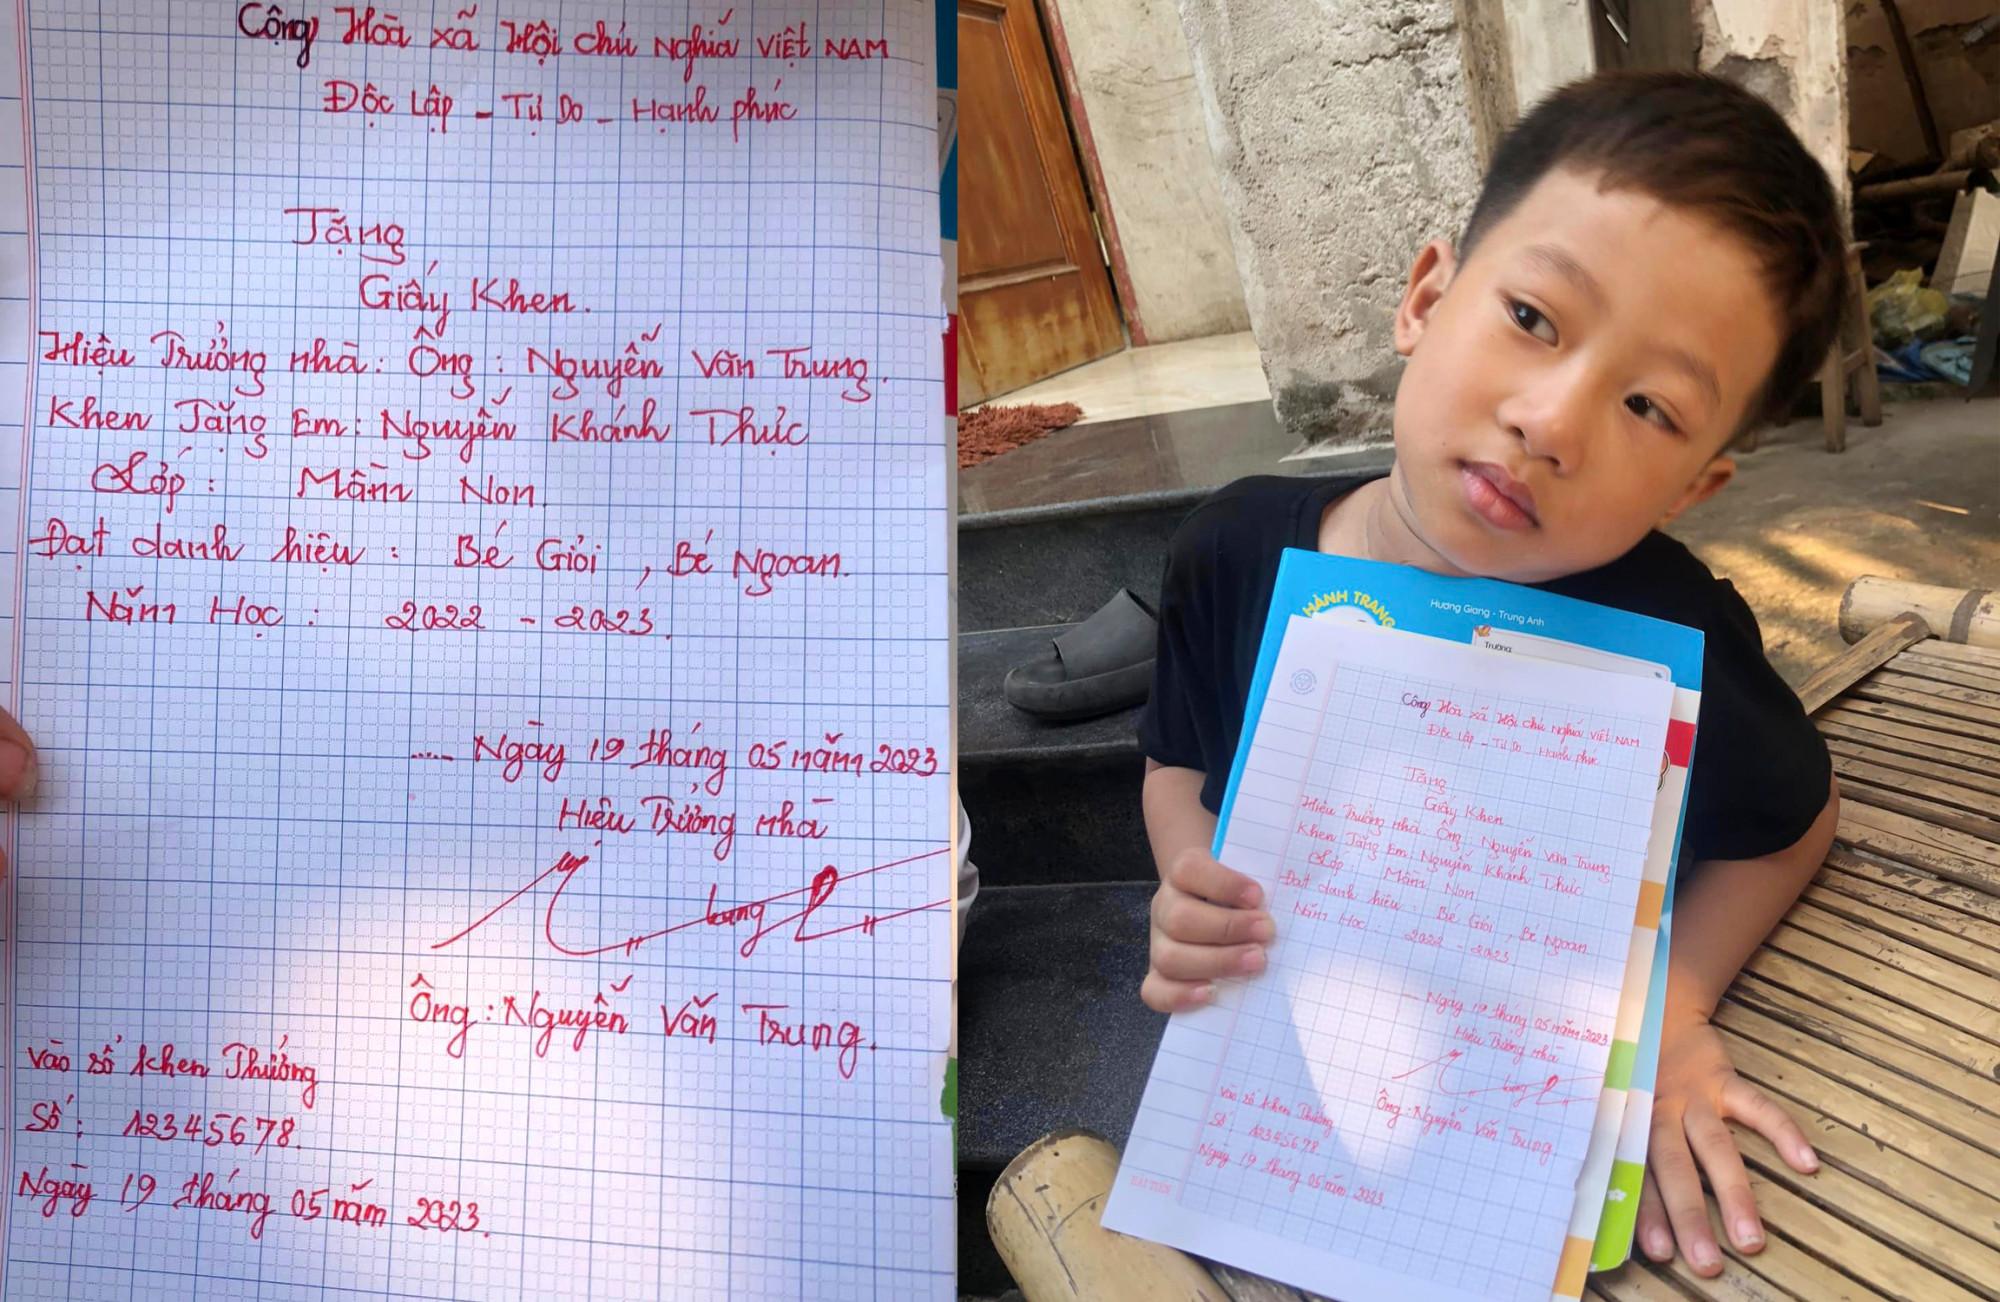 Cộng Hòa xã Hội chủ Nghĩa Việt NAM
Độc Lập - Tự Do - Hạnh phúc
Tặng
Giấy Khen.
Hiệu Trưởng nhà: Ông: Nguyễn Văn Trung.
Khen Tặng Em: Nguyễn Khánh Thức
Lớp: Mầm Non.
Đạt danh hiệu: Bé Giỏi, Bé Ngoan.
Năm Học: 2022 - 2023.
..... Ngày 19 tháng 05 năm 2023
Hiệu Trưởng nhà
trung
Ông: Nguyễn Văn Trung.
Vào sổ khen Thưởng
Số: 12345678.
Ngày 19 tháng 05 năm 2023.
HÀNH TRANG
Hương Giang - Trung Anh
Trường:
Cộng Hòa xã Hội chủ Nghĩa Việt NAM
Độc Lập - Tự Do - Hạnh phúc
Tặng
Giấy Khen
Hiệu Trưởng nhà: Ông: Nguyễn Văn Trung
Khen Tặng Em: Nguyễn Khánh Thức
Lớp: Mầm Non
Đạt danh hiệu: Bé Giỏi, Bé Ngoan
Năm Học: 2022 - 2023
... Ngày 19 tháng 05 năm 2023
Hiệu Trưởng nhà
trung
Ông: Nguyễn Văn Trung
Vào sổ khen Thưởng
Số: 12345678
Ngày 19 tháng 05 năm 2023.
HẢI TIẾN